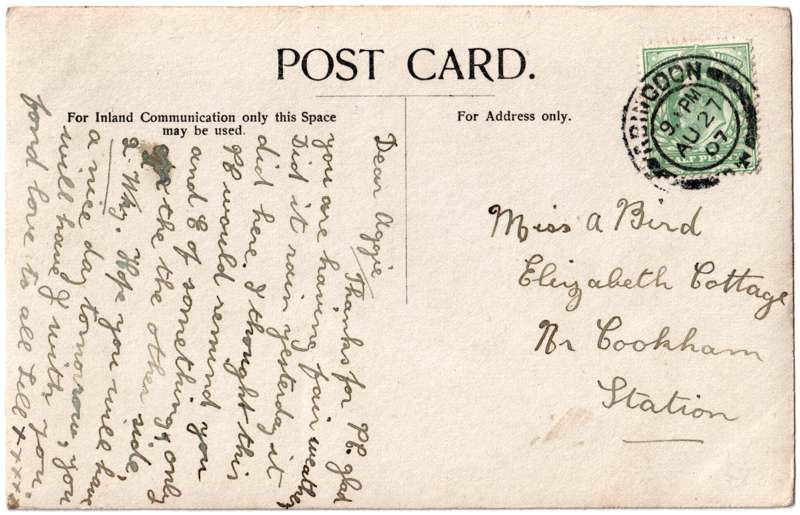 POST CARD.
For Inland Communication only this Space
may be used.
For Address only.
ABINGDON
9 PM
AU 27
07
HALF PENNY
Miss A Bird
Elizabeth Cottage
Nr Cookham
Station
Dear Aggie
Thanks for PC. glad
you are having fair weather
Did it rain yesterday it
did here. I thought this
PC would remind you
and E of something, only
the the other side
2. Why. Hope you will have
a nice day tomorrow, you
will have J with you.
fond love to all Lill xxxx